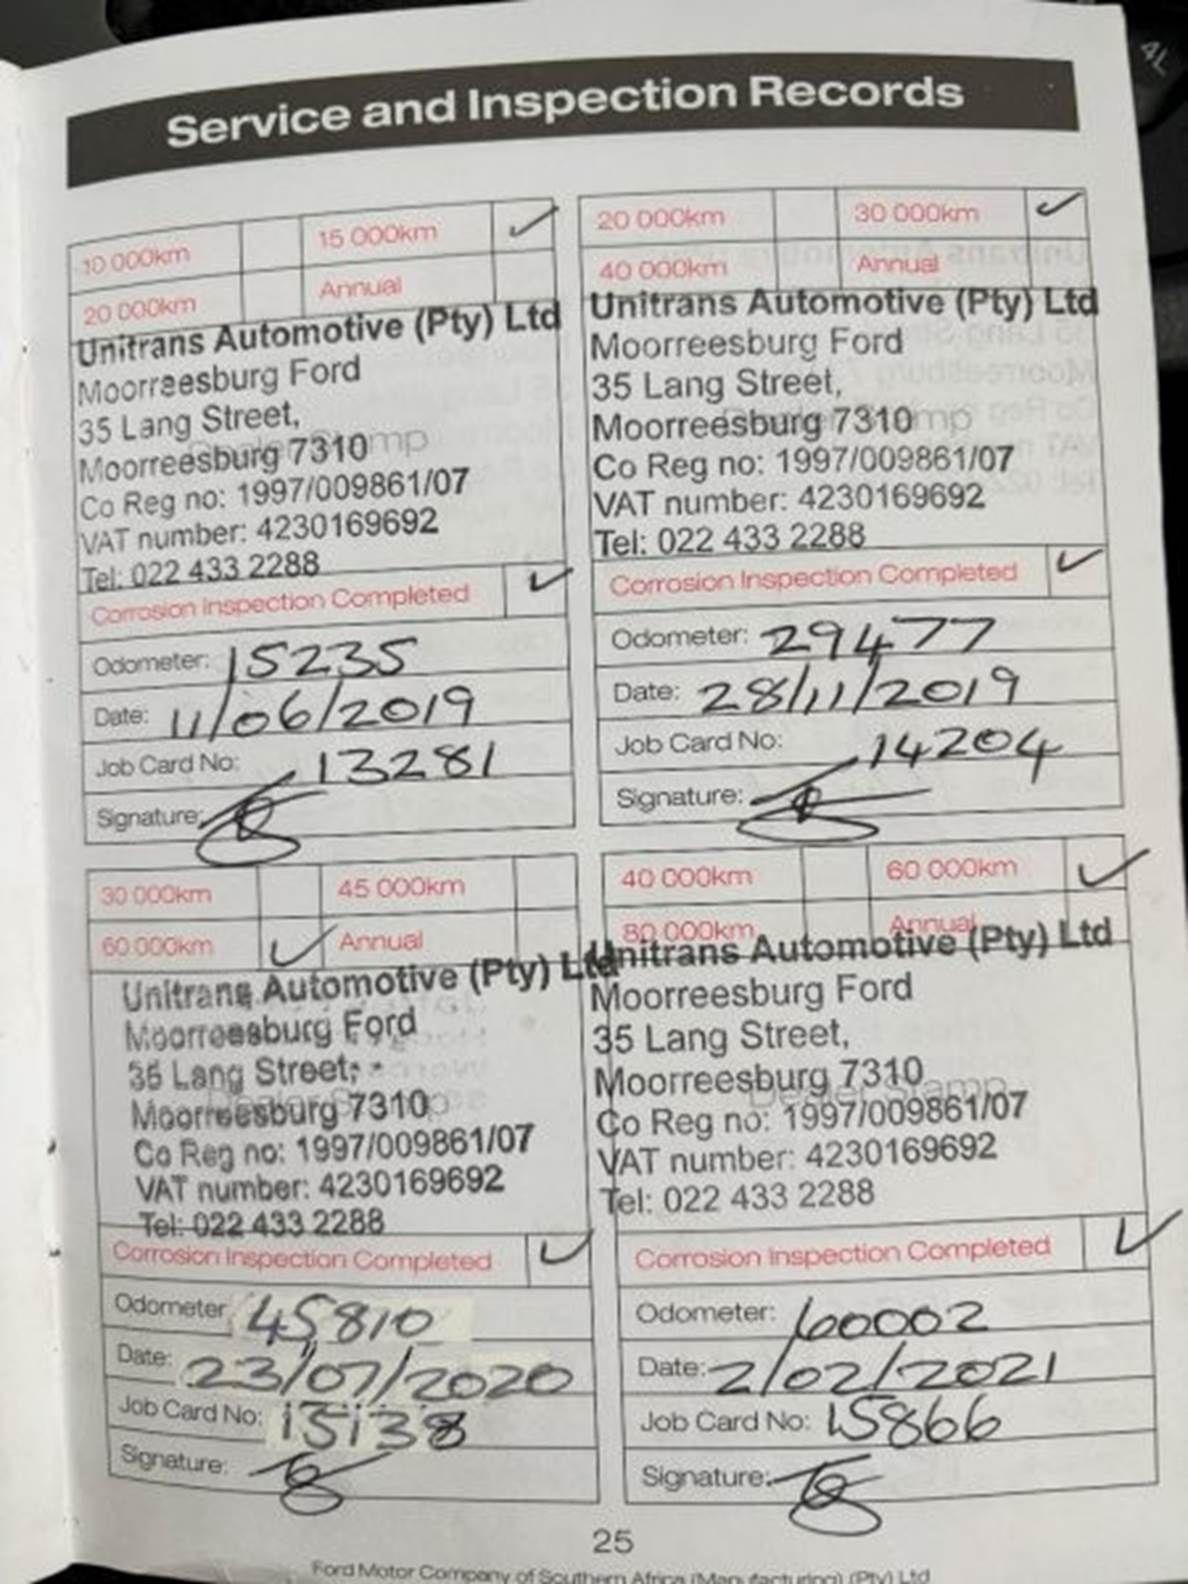 4L
Service and Inspection Records
10 000km
15 000km ✓
20 000km
Annual
Unitrans Automotive (Pty) Ltd
Moorreesburg Ford
35 Lang Street,
Moorreesburg 7310
Dealer Stamp
Co Reg no: 1997/009861/07
VAT number: 4230169692
Tel: 022 433 2288
Corrosion Inspection Completed ✓
Odometer: 15235
Date: 11/06/2019
Job Card No: 13281
Signature:
20 000km
30 000km ✓
40 000km
Annual
Unitrans Automotive (Pty) Ltd
Moorreesburg Ford
35 Lang Street,
Moorreesburg 7310
Dealer Stamp
Co Reg no: 1997/009861/07
VAT number: 4230169692
Tel: 022 433 2288
Corrosion Inspection Completed ✓
Odometer: 29477
Date: 28/11/2019
Job Card No: 14204
Signature:
30 000km
45 000km
60 000km ✓
Annual
Unitrans Automotive (Pty) Ltd
Moorreesburg Ford
35 Lang Street,
Moorreesburg 7310
Dealer Stamp
Co Reg no: 1997/009861/07
VAT number: 4230169692
Tel: 022 433 2288
Corrosion Inspection Completed ✓
Odometer: 45810
Date: 23/07/2020
Job Card No: 15138
Signature:
40 000km
60 000km ✓
80 000km
Annual
Unitrans Automotive (Pty) Ltd
Moorreesburg Ford
35 Lang Street,
Moorreesburg 7310
Dealer Stamp
Co Reg no: 1997/009861/07
VAT number: 4230169692
Tel: 022 433 2288
Corrosion Inspection Completed ✓
Odometer: 60002
Date: 2/02/2021
Job Card No: 15866
Signature:
25
Ford Motor Company of Southern Africa (Manufacturing) (Pty) Ltd